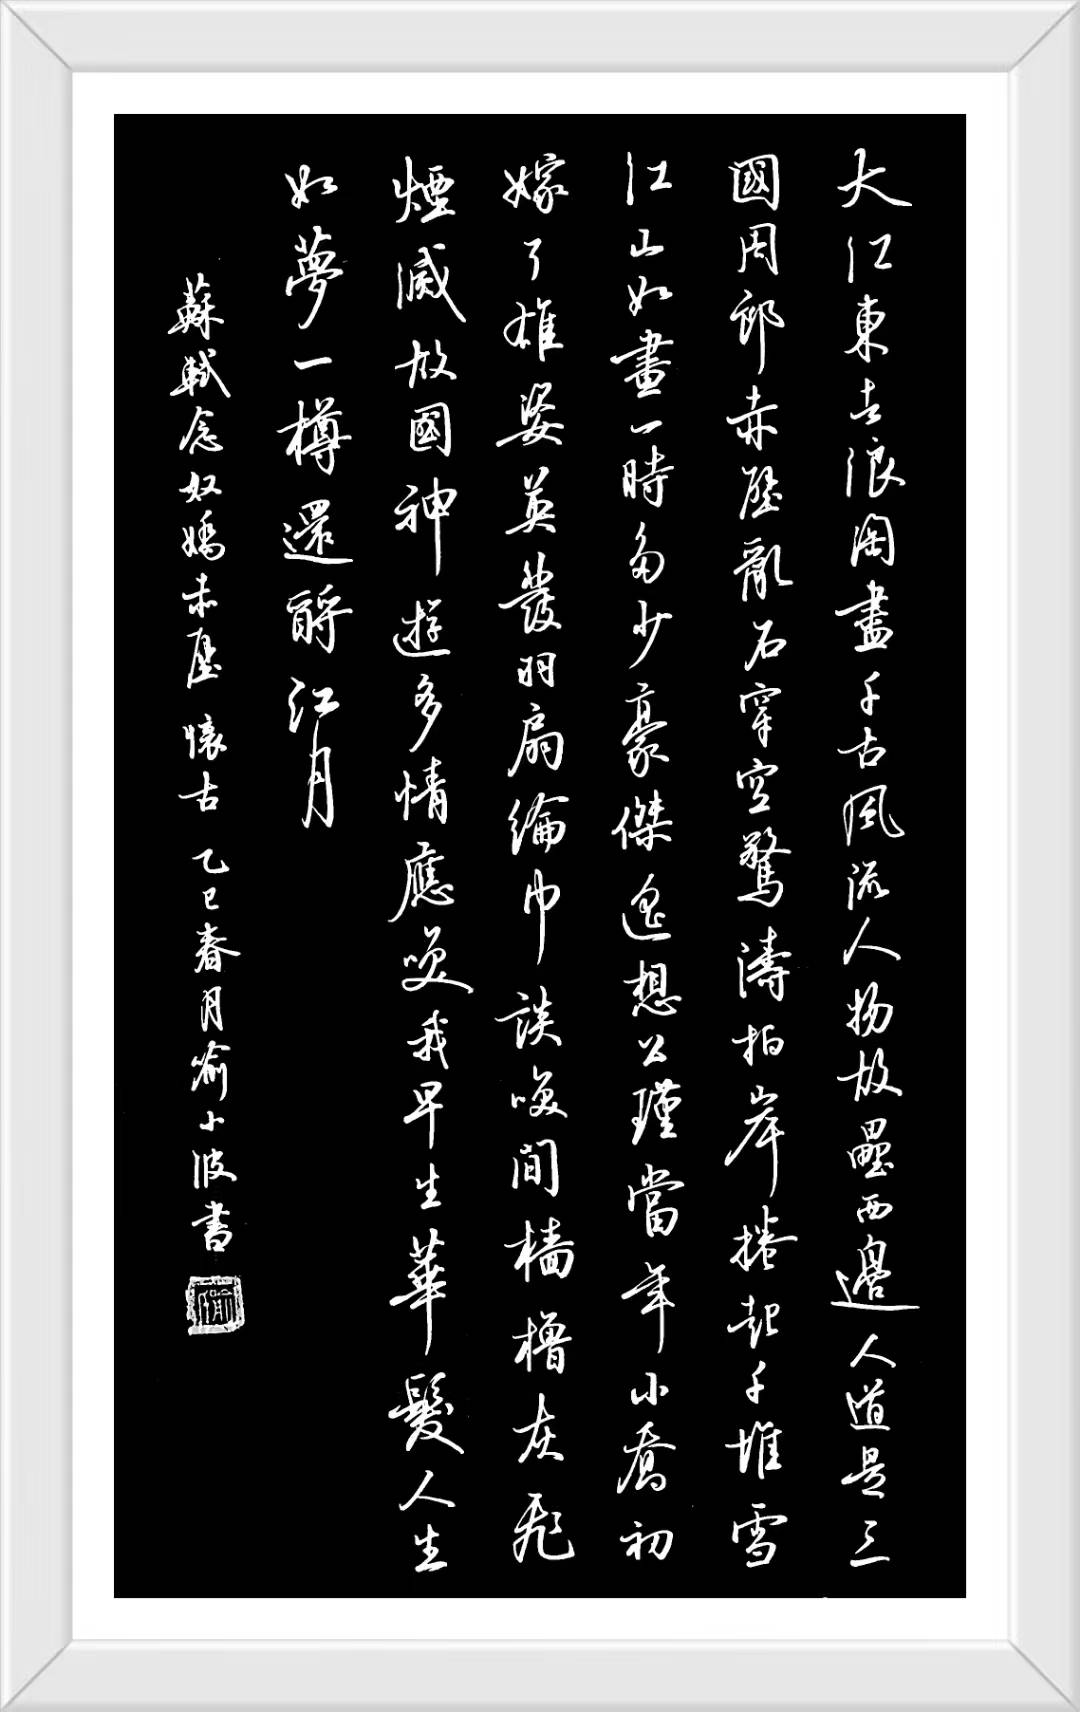 大江東去浪淘盡千古風流人物故壘西邊人道是三
國周郎赤壁亂石穿空驚濤拍岸捲起千堆雪
江山如畫一時多少豪傑遙想公瑾當年小喬初
嫁了雄姿英發羽扇綸巾談唤間檣櫓灰飛
煙滅故國神遊多情應笑我早生華髮人生
如夢一樽還酹江月
蘇軾念奴嬌赤壁懷古 乙巳春月喻小波書
喻